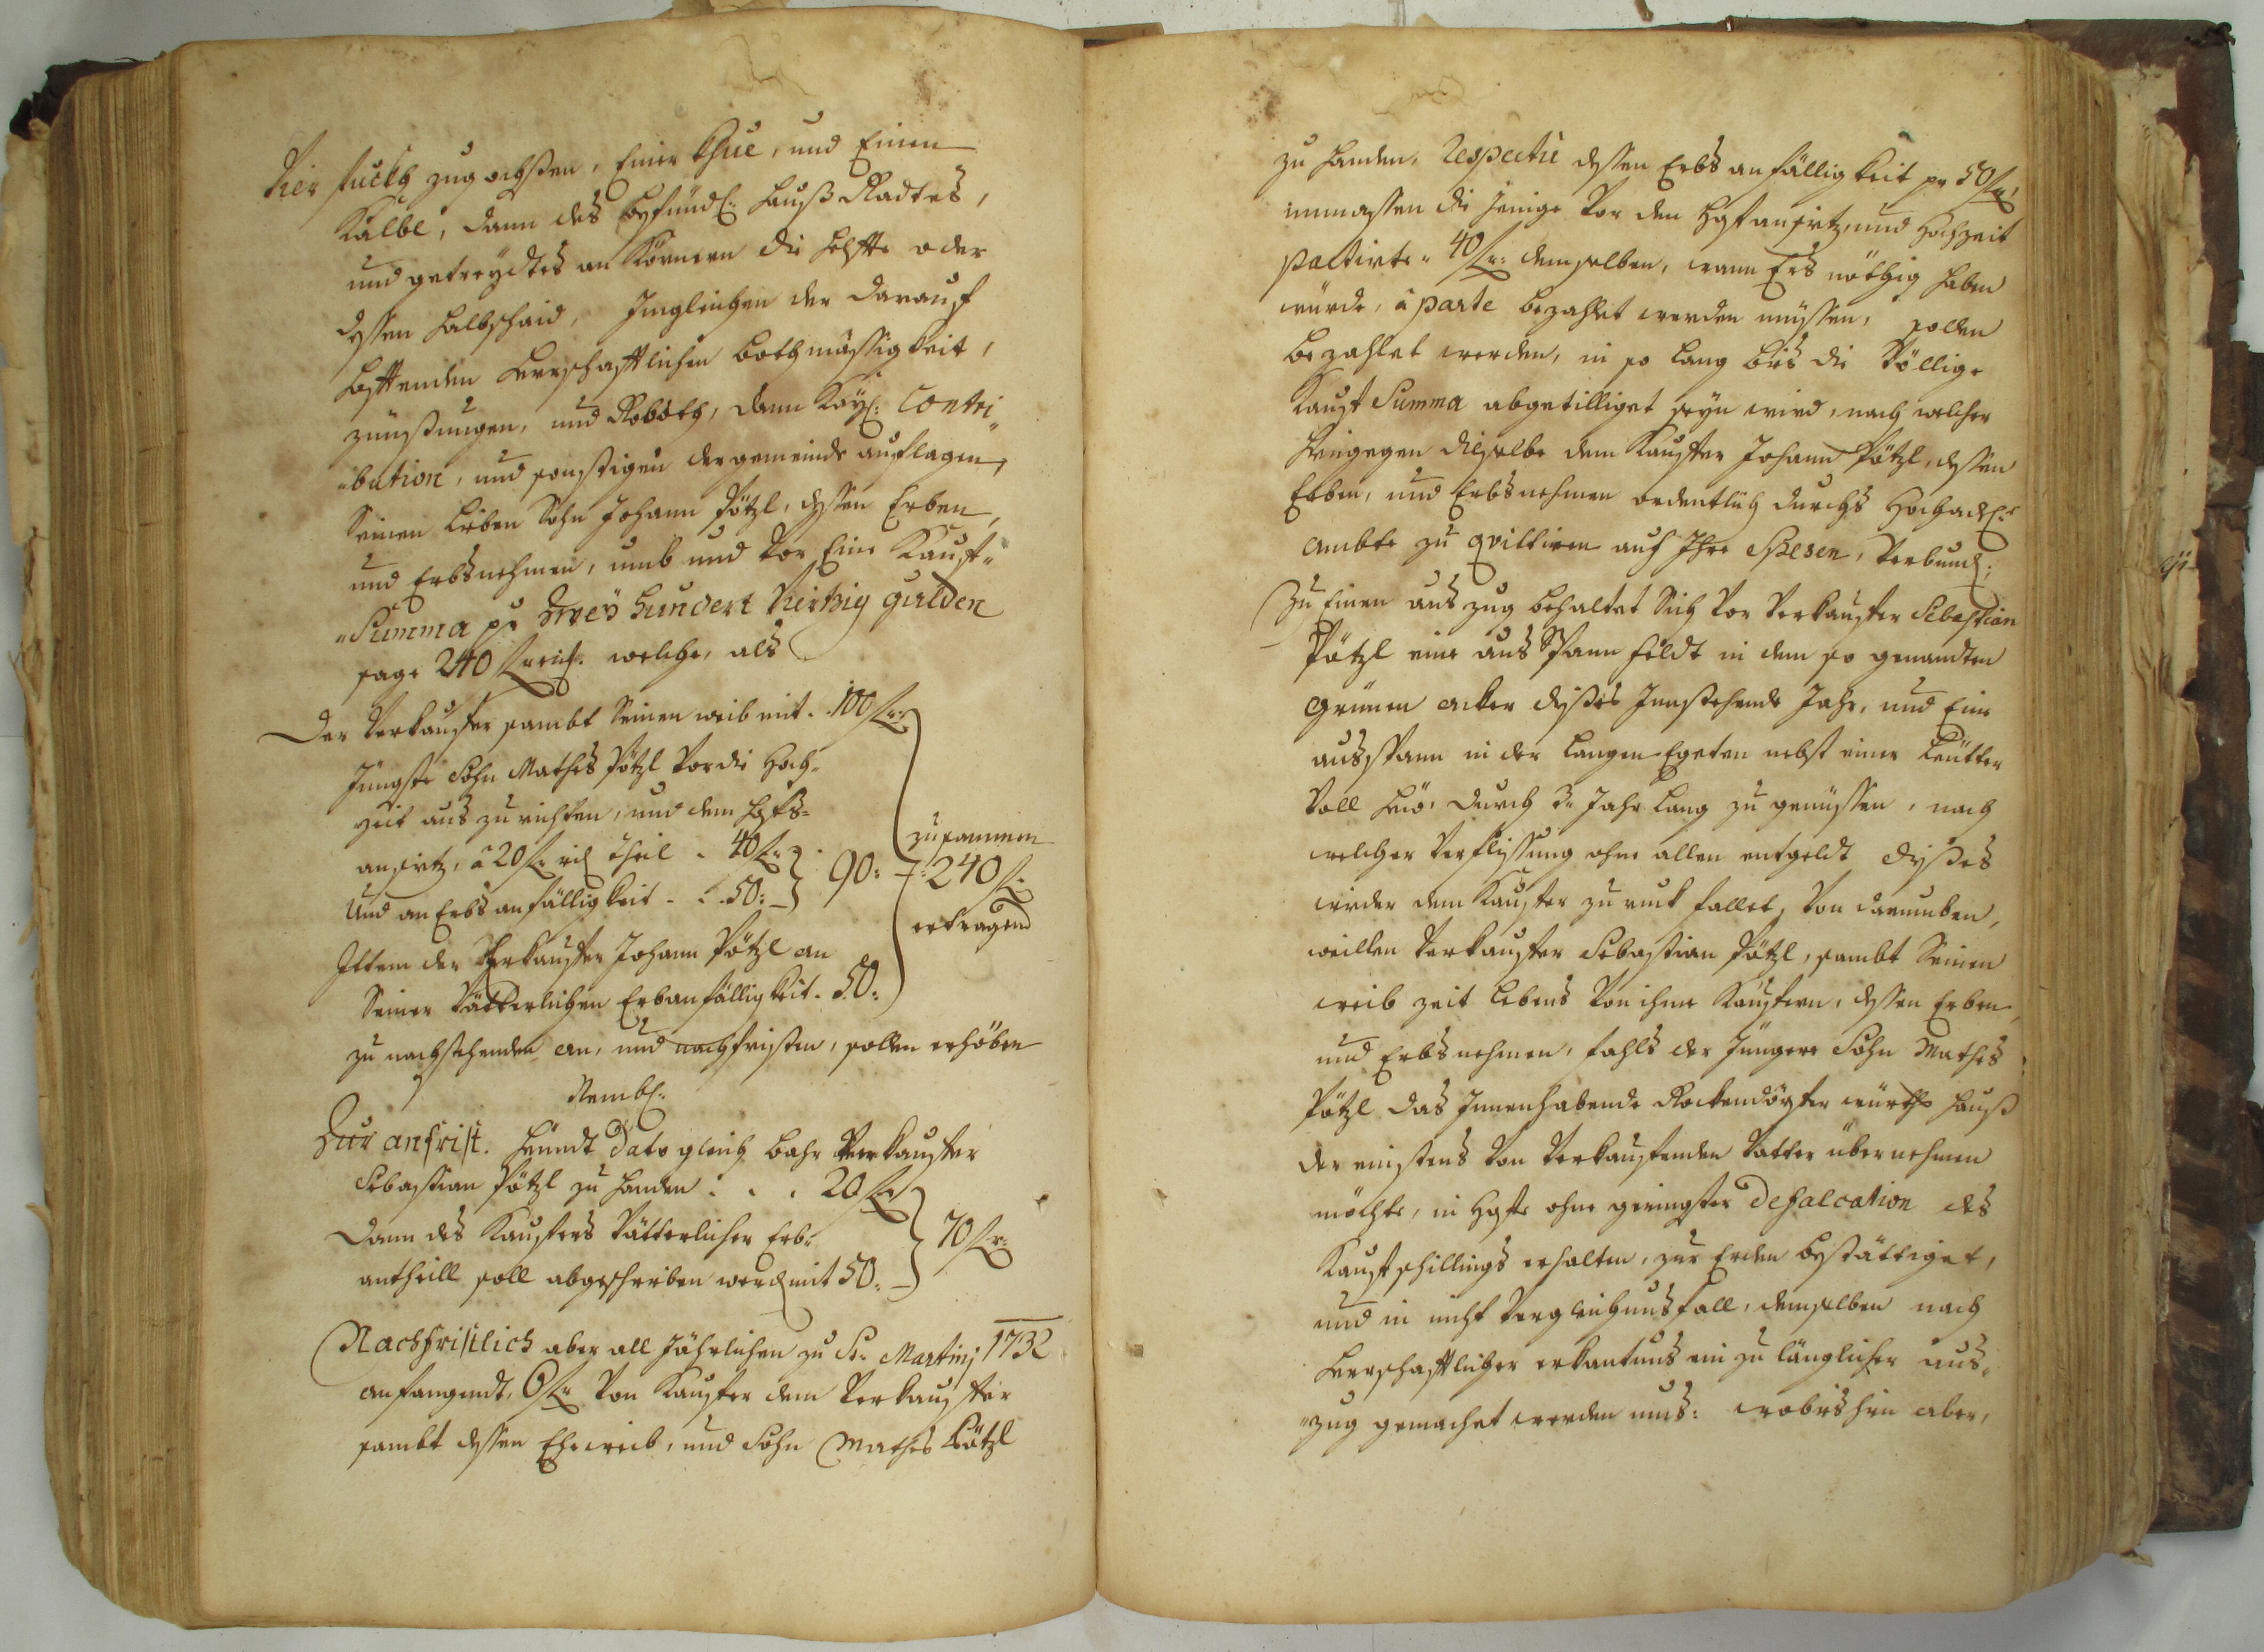 Vier stuckh zug ochßen, Einer Khue, und Einen
Kalbl, dann des befündl: hauß Radtes,
und getreydtes an Körnern die helffte oder
dessen halbschaid, Jngleichen der darauf
hafftenden Herrschafftlichen bothmässigkeit,
zünßungen, und Roboth, dann Kay: Contri
bution, und sonstigen der gemeinde auflagen,
Seinen lieben Sohn Johann Pötzl, dessen Erben,
und Erbsnehmen, umb und vor Eine Kauff
Summa pr Zweÿ hundert Viertzig gulden
sage 240 f welche, als
Der Verkauffer sambt Seinen weib mit . 100 f
Jüngste Sohn Mathes Pötzl vor die Hoch
zeit aus zu richten, und dem
ansietz, à 20 f theil . 40 f
und an Erbs anfälligkeit . . 50: 90:
zusammen
240 f
ertragend
Jttem der Verkauffer Johann Pötzl an
Seiner Vätterlichen Erbanfälligkeit . 50:
zu nachstehenden an, und nachfristen, sollen erhöben
Nembl:
Zur anfrist. heundt dato gleich bahr Verkauffer
Sebastian Pötzl zu handen . . . 20 f
Dann des Kauffers Vätterlicher Erb
antheill soll abgeschrieben werd mit 50: 70 f
Nachfristlich aber all Jährlichen zu St: Martinj 1732
anfangendt, 6 f von Kauffer dem Verkauffer
sambt dessen Eheweib, und Sohn Mathes Pötzl
zu handen, Respective dessen Erbs anfälligkeit pr 50 f
immassen die jenige vor den ansietz, und Hochzeit
pactirte 40 f: demselben, wann Ers nöthig haben
würde, à parte bezahlet werden müssen, sollen
bezahlet werden, in so lang bis die Völlige
Kauff Summa abgetilliget seyn wird, nach welcher
hingegen dieselbe dem Kauffer Johann Pötzl, dessen
Erben, und Erbsnehmen ordentlich durchs Hochadl:
ambte zu quittiren auf Jhre Spesen, verbund:
Zu Einen auszug behaltet Sich vor Verkauffer Sebastian
Pötzl eine aus Spann feldt in dem so genandten
Grünen acker dießes Jnnstehende Jahr, und Eine
ausspann in der langen Egeten nebst einer Leütter
voll heü, durch 3 Jahr lang zu genüssen, nach
welcher Verflissung ohne allen entgeldt dießes
wieder dem Kauffer zu ruck fallet, von darumben,
weillen Verkauffer Sebastian Pötzl, sambt Seinen
weib zeit lebens von ihme Kauffern, dessen Erben,
und Erbsnehmen, fahls der Jüngere Sohn Mathes
Pötzl das Jnnenhabende Rockendörfer würths hauß
der einstens von Verkauffenden Vatter übernehmen
möchte, in ohne geringster Defalcation des
Kauffschillings erhalten, zur Erden bestättiget,
und in nicht Vergleichungs fall, demselben nach
Herrschafftlicher erkantnus ein zu länglicher aus
zug gemachet werden mus: wobis hin aber,